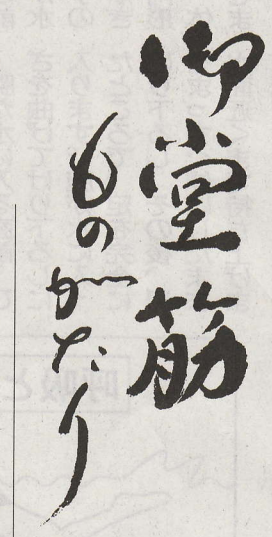 御堂筋
ものがたり